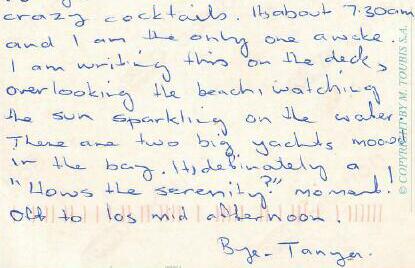 crazy cocktails. Its about 7.30am
and I am the only one awake.
I am writing this on the deck,
overlooking the beach, watching
the sun sparkling on the water.
There are two big yachts moored
in the bay. Its definately a
"Hows the serenity?" moment!
Off to Ios mid afternoon.
Bye - Tanya.
© COPYRIGHT BY M. TOUBIS S.A.